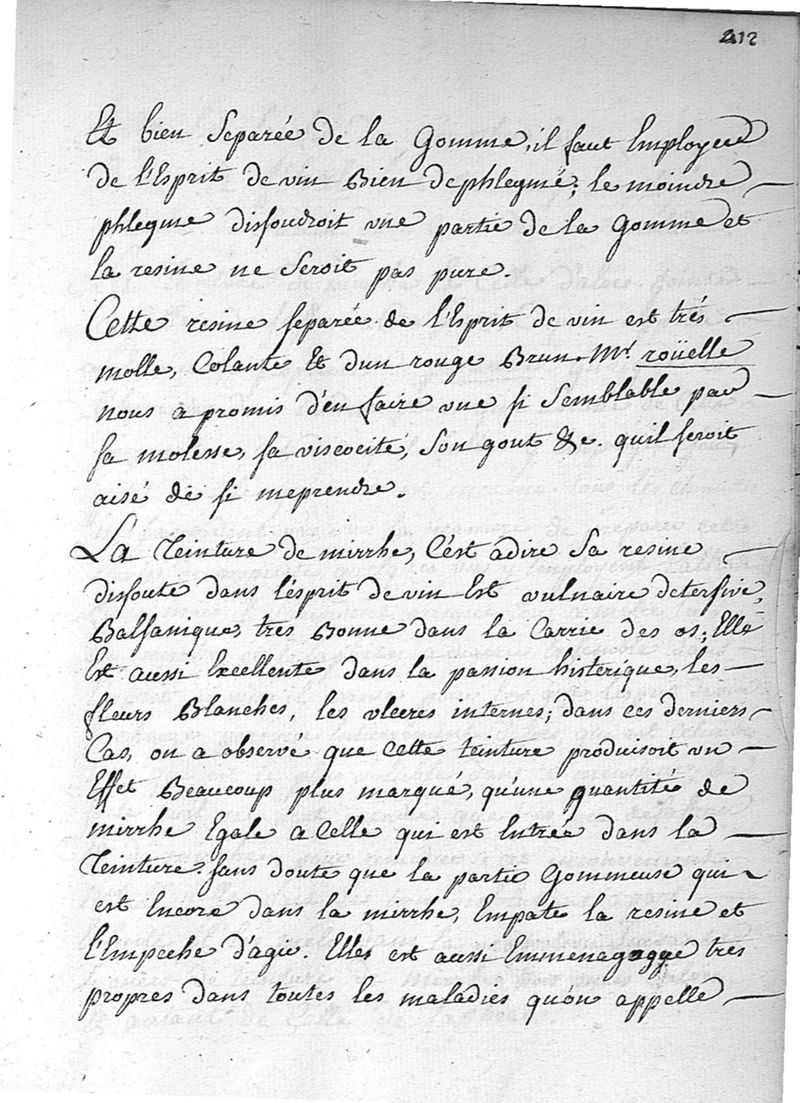 212
Et bien Separée de la Gomme, il faut Employer
de l'Esprit de vin Bien dephlegmé; le moindre
phlegme dissoudroit une partie de la Gomme et
la resine ne Seroit pas pure.
Cette resine separée de l'Esprit de vin est trés
molle, Colante Et dun rouge Brun. Mr. roüelle
nous a promis d'en faire une si Semblable par
sa molesse, sa viscocite, Son gout &c. quil seroit
aisé de si meprendre.
La Teinture de mirrhe, C'est adire Sa resine
dissoute dans l'esprit de vin Est vulnaire detersive,
Balsanique, tres Bonne dans la Carrie des os; Elle
Est aussi Excellente dans la passion histerique, les
fleurs Blanches, les vlceres internes; dans ces derniers
Cas, on a observé que Cette teinture produisoit un
Effet Beaucoup plus marqué, qu'une quantité de
mirrhe Egale a Celle qui est Entrée dans la
Teinture sans doute que la partie Gommeuse qui
est Encore dans la mirrhe, Empate la resine et
l'Empeche d'agir. Elle est aussi Emmenagogue tres
propres dans toutes les maladies qu'on appelle